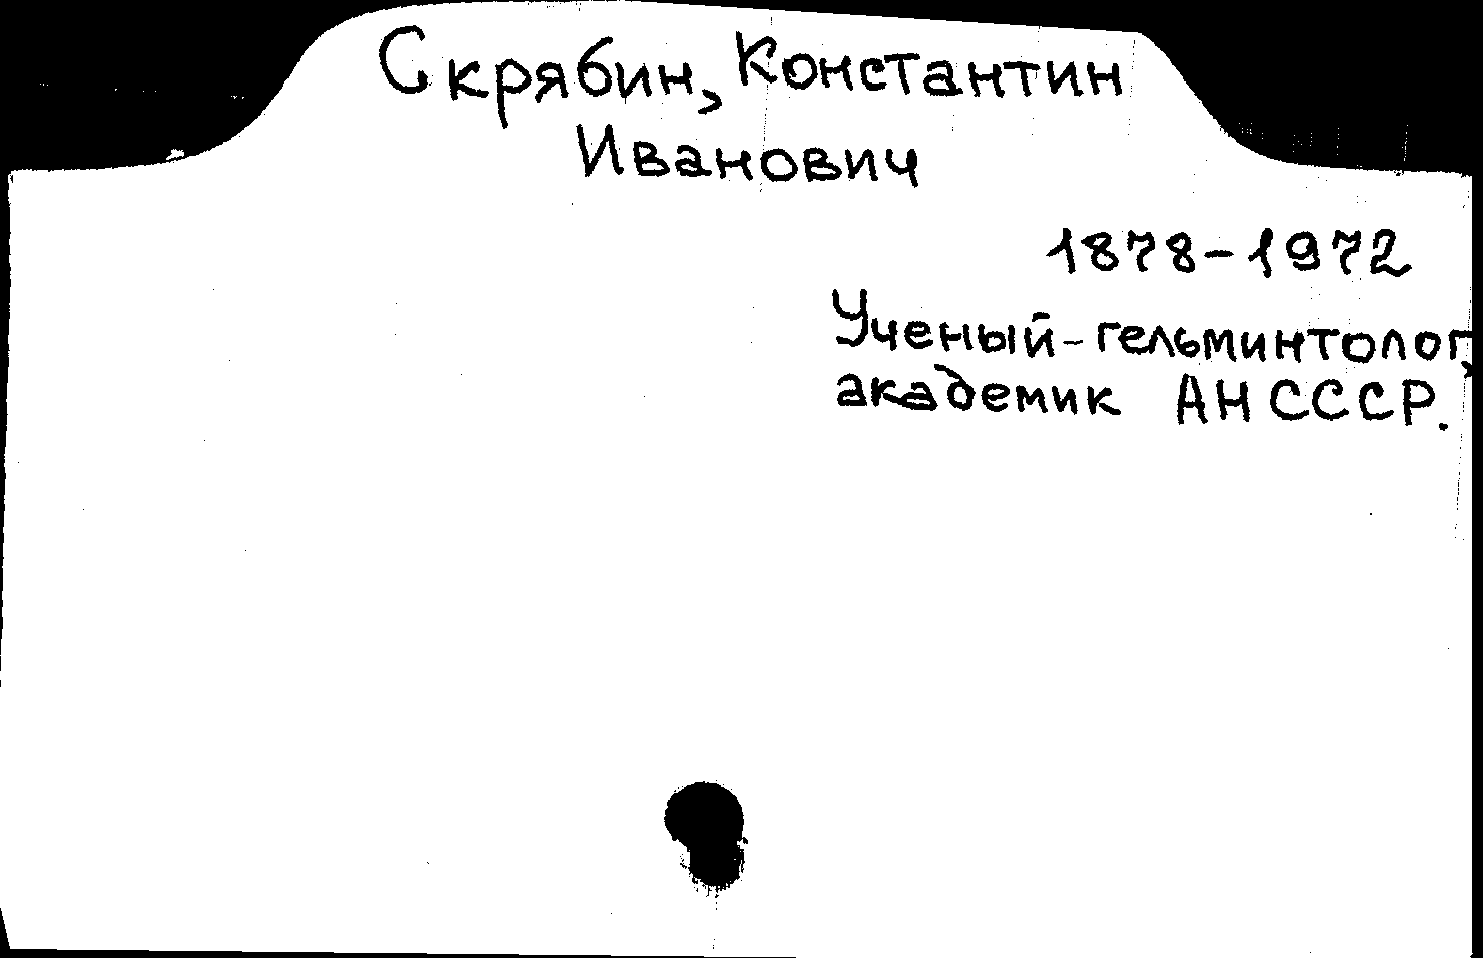 Скрябин, Константин
Иванович
1878-1972
Ученый-гельминтолог,
академик АН СССР.